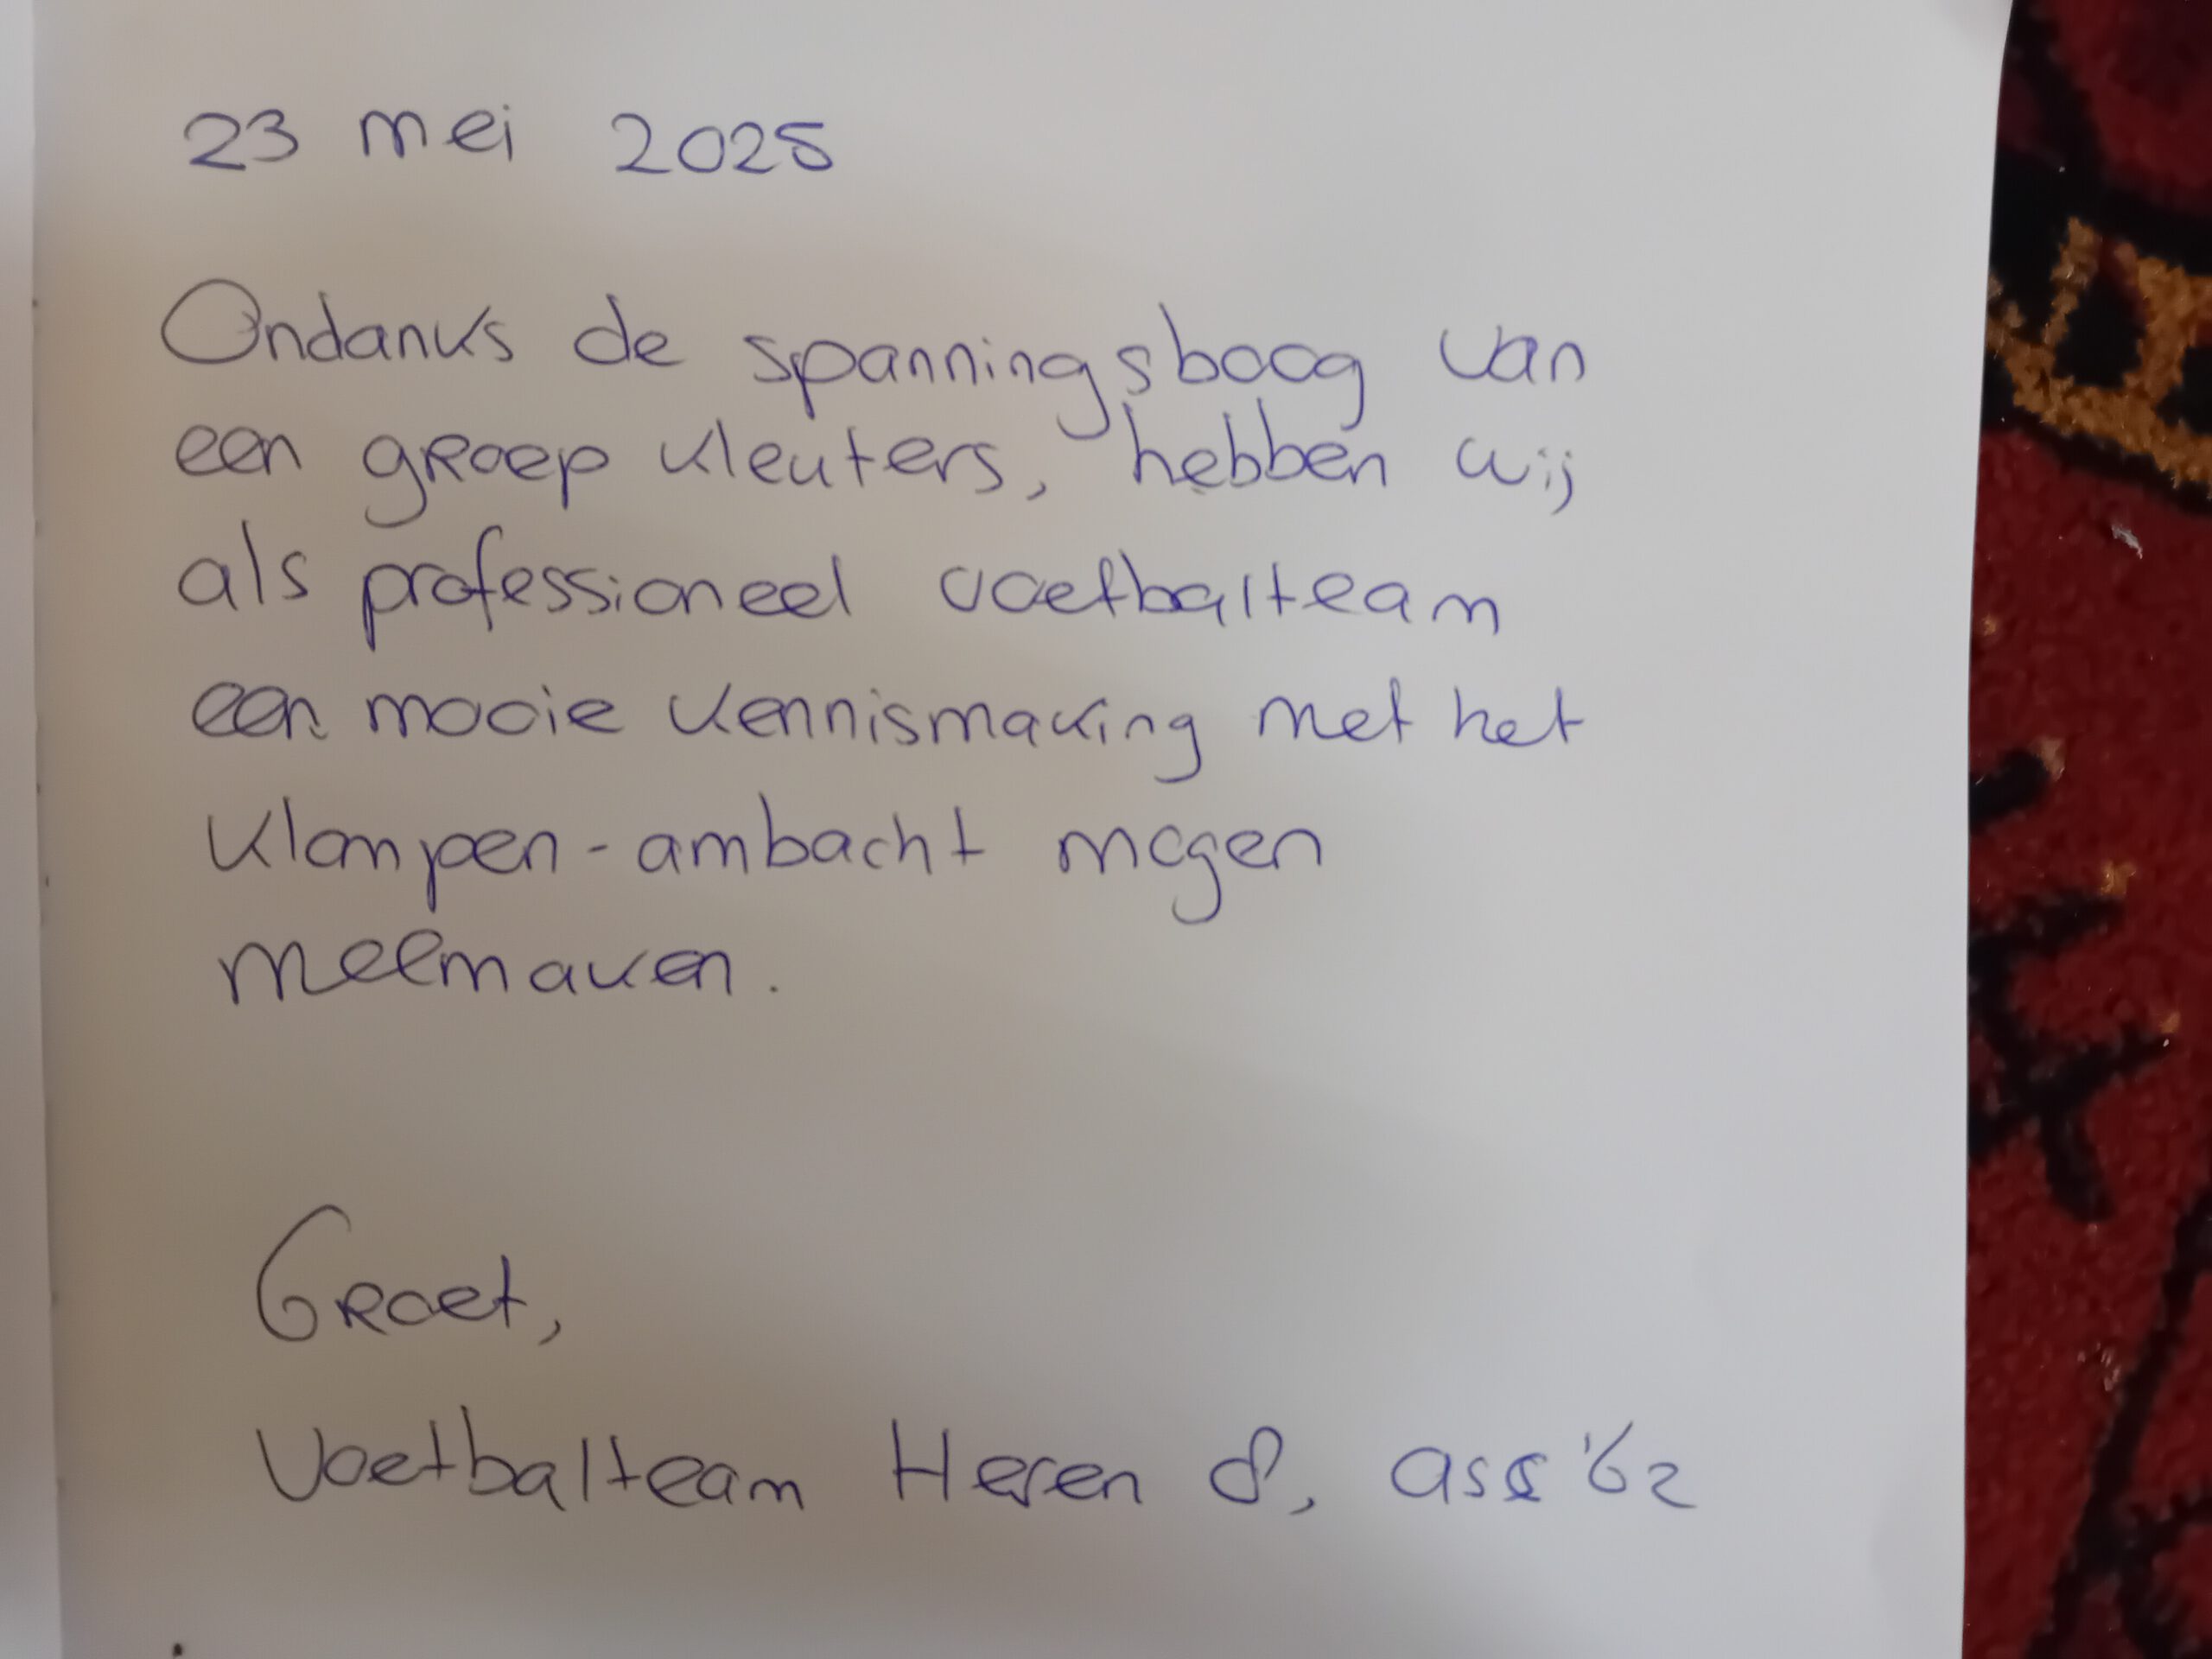 23 mei 2025
Ondanks de spanningsboog van
een groep kleuters, hebben wij
als professioneel voetbalteam
een mooie kennismaking met het
Klompen-ambacht mogen
meemaken.
Groet,
Voetbalteam Heren 8, ass '62